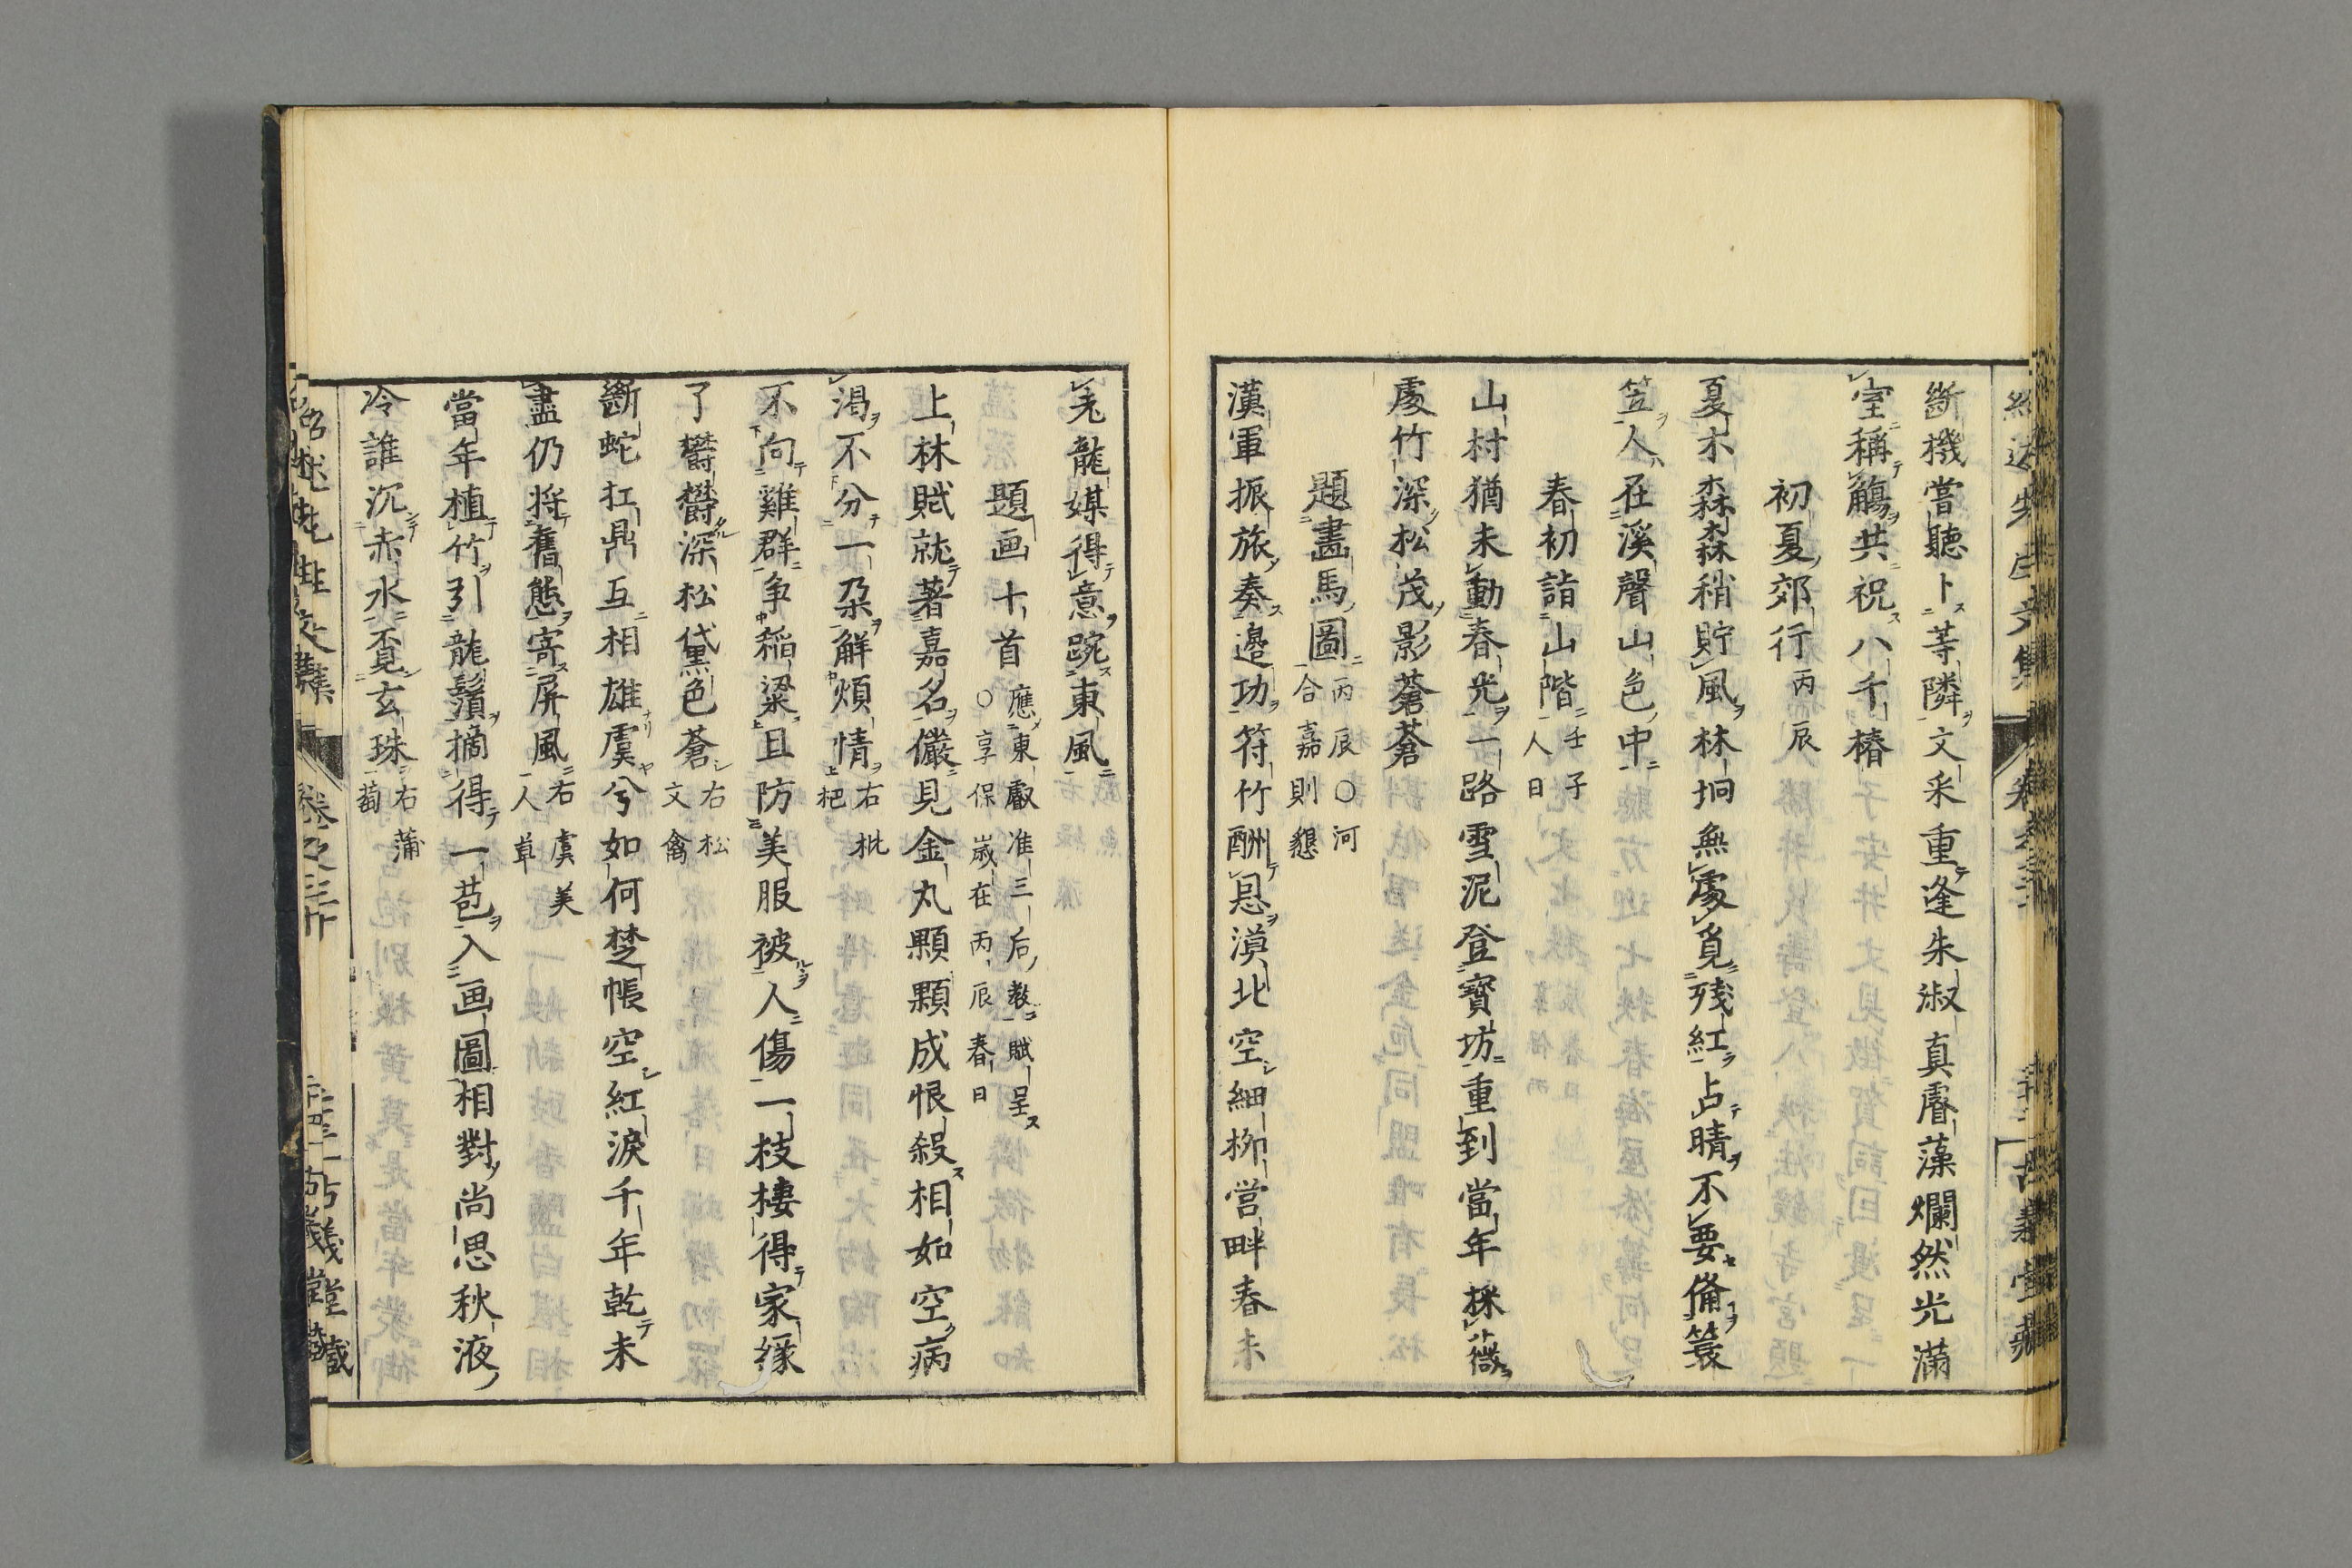 斷機嘗聽卜等隣文采重逢朱淑真麐藻爛然光滿
室稱觴共祝八千椿
初夏郊行丙辰
夏木森森稍貯風林坰無處覓残紅占晴不要俻簑
笠人在溪聲山色中
春初詣山階壬子人日
山村猶未動春光一路雪泥登寶坊重到當年採薇
處竹深松茂影蒼蒼
題畫馬圖丙辰〇河合嘉則懇
漢軍振旅奏邉功符竹酬恩漠北空細栁営畔春未
㐬龍媒得意踠東風
題画十首應東叡准三后教賦呈〇享保歳在丙辰春日
上林賦就著嘉名儼見金丸顆顆成恨殺相如空病
渇不分一朶解煩情右枇杷
不向雞群争稲粱且防美服被人傷一枝棲得家縁
了欝欝深松黛色蒼右松文禽
斷蛇扛鼎互相雄虞兮如何楚帳空紅淚千年乾未
盡仍将舊態寄屏風右虞美人草
當年植竹引龍鬚摘得一苞入画圖相對尚思秋液
冷誰沉赤水覔玄珠右蒲萄
紹述先生文集 卷之三十 古義堂藏